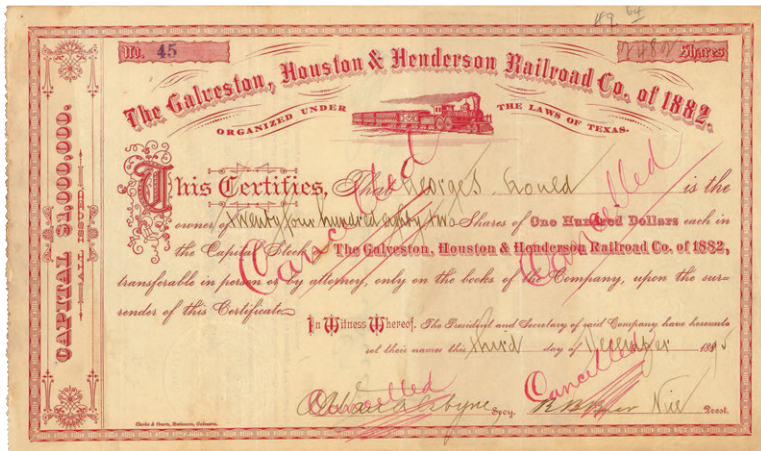 49 64
No. 45
2482 Shares
The Galveston, Houston & Henderson Railroad Co. of 1882.
ORGANIZED UNDER THE LAWS OF TEXAS.
CAPITAL $1,000,000.
This Certifies, That George J. Gould is the
owner of twenty four hundred eighty two Shares of One Hundred Dollars each in
the Capital Stock of The Galveston, Houston & Henderson Railroad Co. of 1882,
transferable in person or by attorney, only on the books of the Company, upon the sur=
render of this Certificate
In Witness Whereof. The President and Secretary of said Company have hereunto
set their names this third day of December 1895
Cancelled
Cancelled
Cancelled
Cancelled
Secy.
Vice Prest.